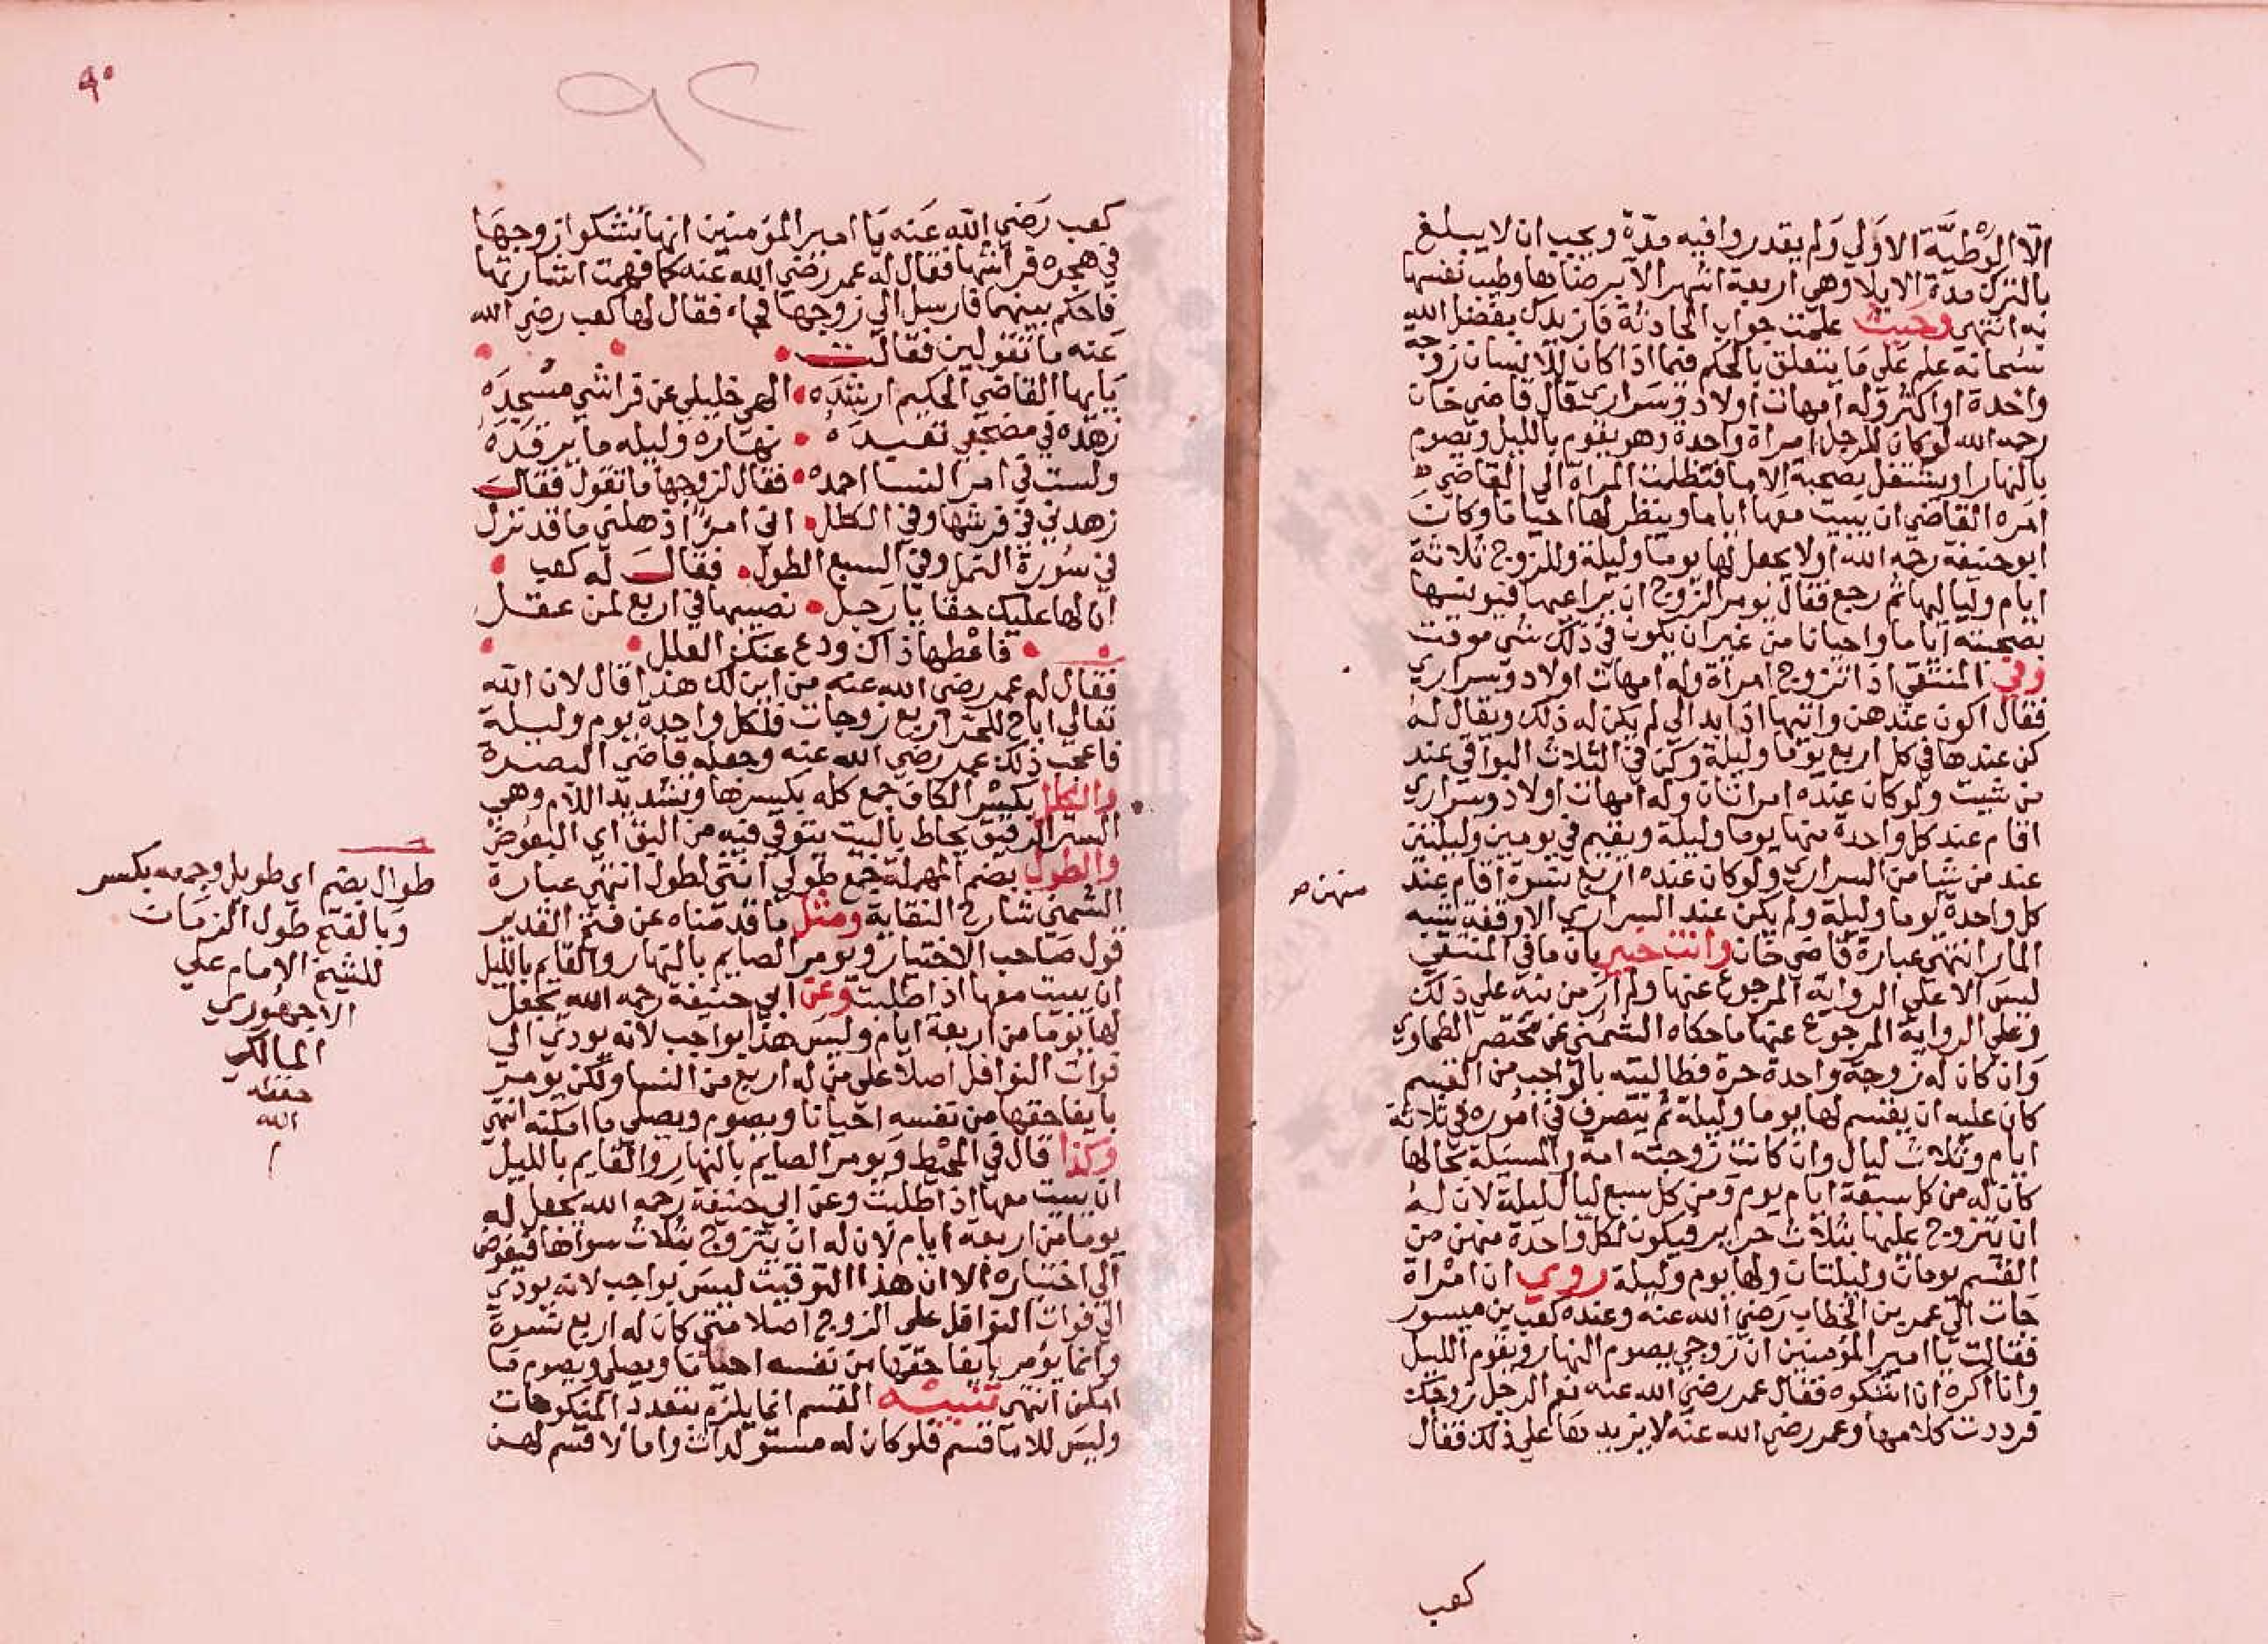 الا الوطية الاولى ولم يقدروا فيه مدة ويجب ان لا يبلغ
بالترك مدة الايلا وهي اربعة اشهر الا برضاها وطيب نفسها
به انتهى وحيث علمت جواب الحادثة فازيدك بفضل الله
سبحانه علم على ما يتعلق بالحكم فيما اذا كان للانسان زوجة
واحدة او اكثر وله امهات اولاد وسراري قال قاضي خان
رحمه الله لو كان للرجل امراة واحدة وهو يقوم بالليل ويصوم
بالنهار او يشتغل بصحبة الاما فتظلمت المراة الى القاضي
امره القاضي ان يبيت معها اياما ويفطر لها احيانا وكان
ابو حنيفة رحمه الله اولا يجعل لها يوما وليلة وللزوج ثلاثة
ايام ولياليها ثم رجع فقال يومر الزوج ان يراعيها فيونسها
بصحبته اياما واحيانا من غير ان يكون في ذلك شي موقت
وفي المنتقى اذا تزوج امراة وله امهات اولاد وسراري
فقال اكون عندهن واتيها اذا بدا لي لم يكن له ذلك ويقال له
كن عندها في كل اربع يوما وليلة وكن في الثلاث البواقي عند
من شيت ولو كان عنده امراتان وله امهات اولاد وسراري
اقام عند كل واحدة منها يوما وليلة ويقيم في يومين وليلتين
عند من شا من السراري ولو كان عنده اربع نسوة اقام عند
منهن صح
كل واحدة يوما وليلة ولم يكن عند السراري الا وقفة شبه
المار انتهى عبارة قاضي خان وانت خبير بان ما في المنتقى
ليس الا على الرواية المرجوع عنها ولم ار من نبه على ذلك
وعلى الرواية المرجوع عنها ما حكاه الشمني عن مختصر الطحاوي
وان كان له زوجة واحدة حرة فطالبته بالواجب من القسم
كان عليه ان يقسم لها يوما وليلة ثم يتصرف في اموره في ثلاثة
ايام وثلاث ليال وان كانت زوجته امة والمسيلة بحالها
كان له من كل سبعة ايام يوم ومن كل سبع ليال ليلة لان له
ان يتزوج عليها بثلاث حراير فيكون لكل واحدة منهن من
القسم يومان وليلتان ولها يوم وليلة روي ان امراة
جات الى عمر بن الخطاب رضي الله عنه وعنده كعب بن ميسور
فقالت يا امير المؤمنين ان زوجي يصوم النهار ويقوم الليل
وانا اكره ان اشكوه فقال عمر رضي الله عنه نعم الرجل زوجك
فرددت كلامها وعمر رضي الله عنه لا يزيدها على ذلك فقال
كعب
٩٠
٩٢
كعب رضي الله عنه يا امير المؤمنين انها تشكوا زوجها
في هجره فراشها فقال له عمر رضي الله عنه كما فهمت اشارتها
فاحكم بينهما فارسل الى زوجها فجاء فقال لها كعب رضي الله
عنه ما تقولين فقالت
يايها القاضي الحكيم ارشده الهى خليلي عن فراشي مسجده
زهده في مضجعي تعبده نهاره وليله ما يرقده
ولست في امر النسا احمده فقال لزوجها ما تقول فقالت
زهدني في فرشها وفي الكلل اني امرؤ اذهلني ما قد نزل
في سورة النمل وفي السبع الطول فقالت له كعب
ان لها عليك حقا يا رجل نصيبها في اربع لمن عقل
فاعطها ذاك ودع عنك العلل
فقال له عمر رضي الله عنه من اين لك هذا قال لان الله
تعالى اباح للحر اربع زوجات فلكل واحدة يوم وليلة
فاعجب ذلك عمر رضي الله عنه وجعله قاضي البصرة
والكلل بكسر الكاف جمع كله بكسرها وتشديد اللام وهي
الستر الرقيق يخاط بالبيت يتوقى فيه من البق اي البعوض
والطول بضم المهملة جمع طولى انثى لطول انتهى عبارة
الشمني شارح النقاية ومثل ما قدمناه عن فتح القدير
قول صاحب الاختيار ويومر الصايم بالنهار والقايم بالليل
ان يبيت معها اذا طلبت وعن ابي حنيفة رحمه الله يجعل
لها يوما من اربعة ايام وليس هذا بواجب لانه يودي الى
فوات النوافل اصلا على من له اربع من النسا ولكن يومر
بايفا حقها من نفسه احيانا ويصوم ويصلي ما امكنه انتهى
وكذا قال في المحيط ويومر الصايم بالنهار والقايم بالليل
ان يبيت معها اذا طلبت وعن ابي حنيفة رحمه الله يجعل له
يوما من اربعة ايام لان له ان يتزوج بثلاث سواها فيفوض
الى اختياره الا ان هذا التوقيت ليس بواجب لانه يودي
الى فوات النوافل على الزوج اصلا متى كان له اربع نسوة
وانما يؤمر بايفا حقها من نفسه احيانا ويصلي ويصوم ما
امكن انتهى تنبيه القسم انما يلزم بتعدد المنكوحات
وليس للاما قسم فلو كان له مستولدات واما لا قسم لهن
طوال بضم اي طويل وجمعه بكسر
وبالفتح طول الزمان
للشيخ الامام علي
الاجهوري
المالكي
حفظه
الله
م